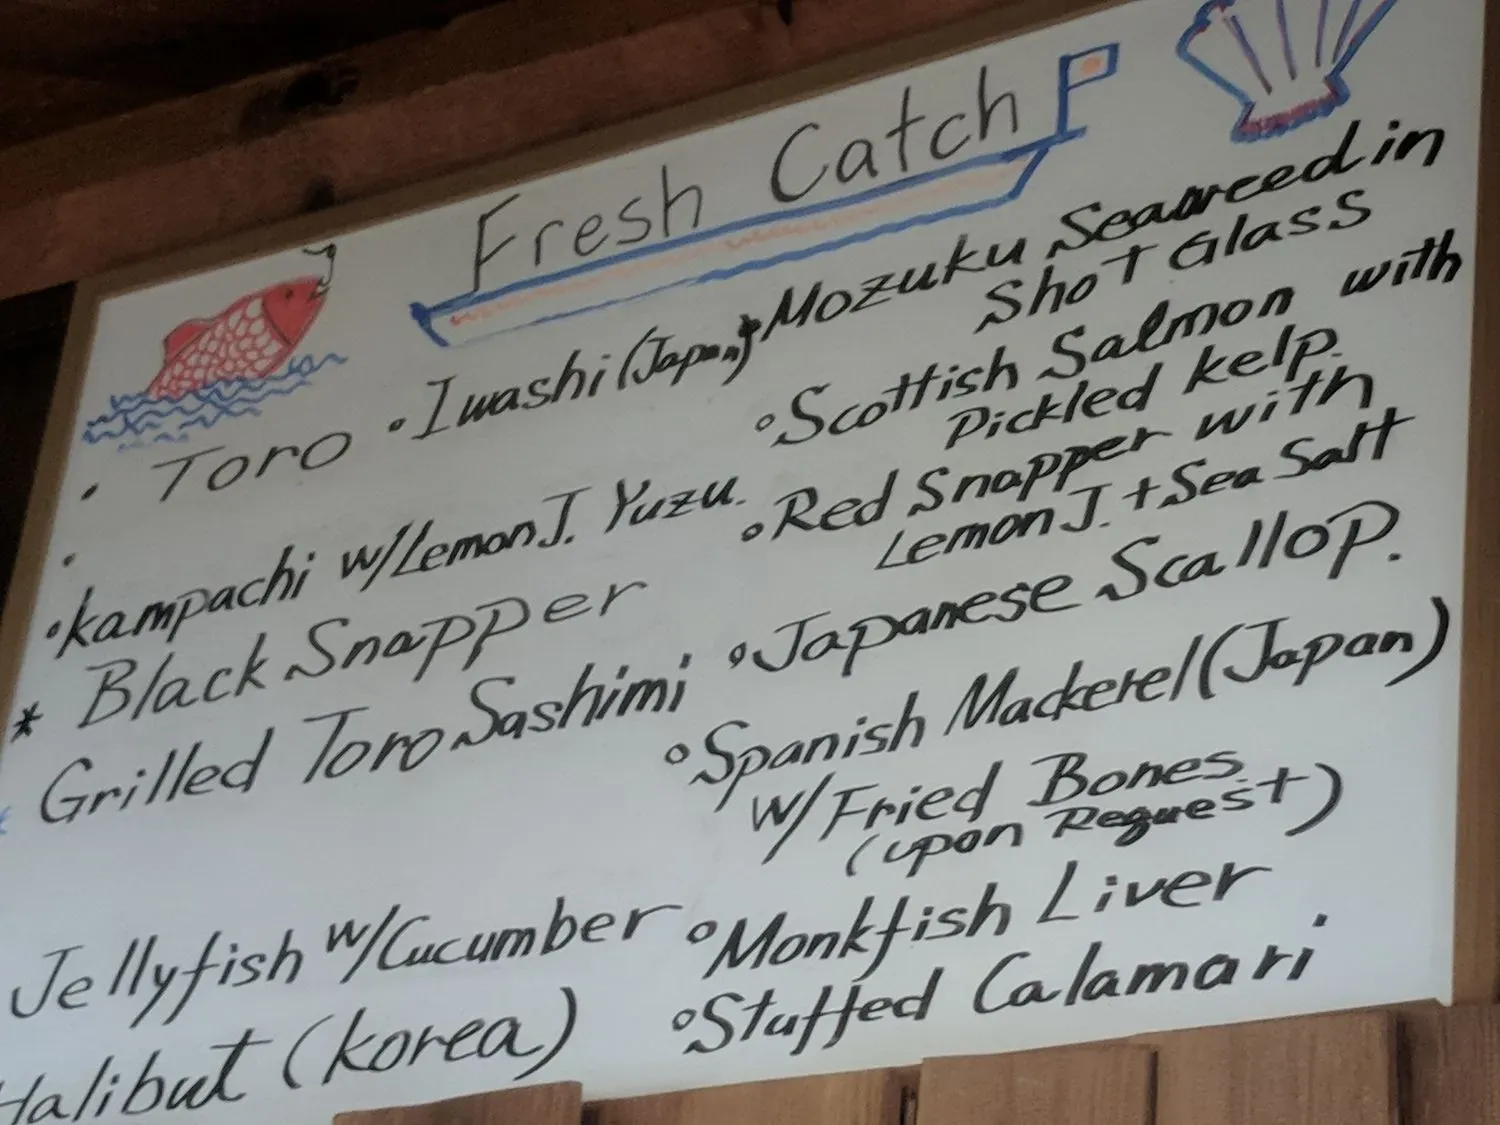 Fresh Catch
• Toro
• Iwashi (Japan)
•
• Kampachi w/Lemon J. Yuzu.
* Black Snapper
Grilled Toro Sashimi
Jellyfish w/Cucumber
Halibut (Korea)
Mozuku Seaweed in
Shot Glass
° Scottish Salmon with
Pickled kelp.
° Red Snapper with
Lemon J. + Sea Salt
° Japanese Scallop.
° Spanish Mackerel (Japan)
w/Fried Bones
(upon Request)
° Monkfish Liver
° Stuffed Calamari